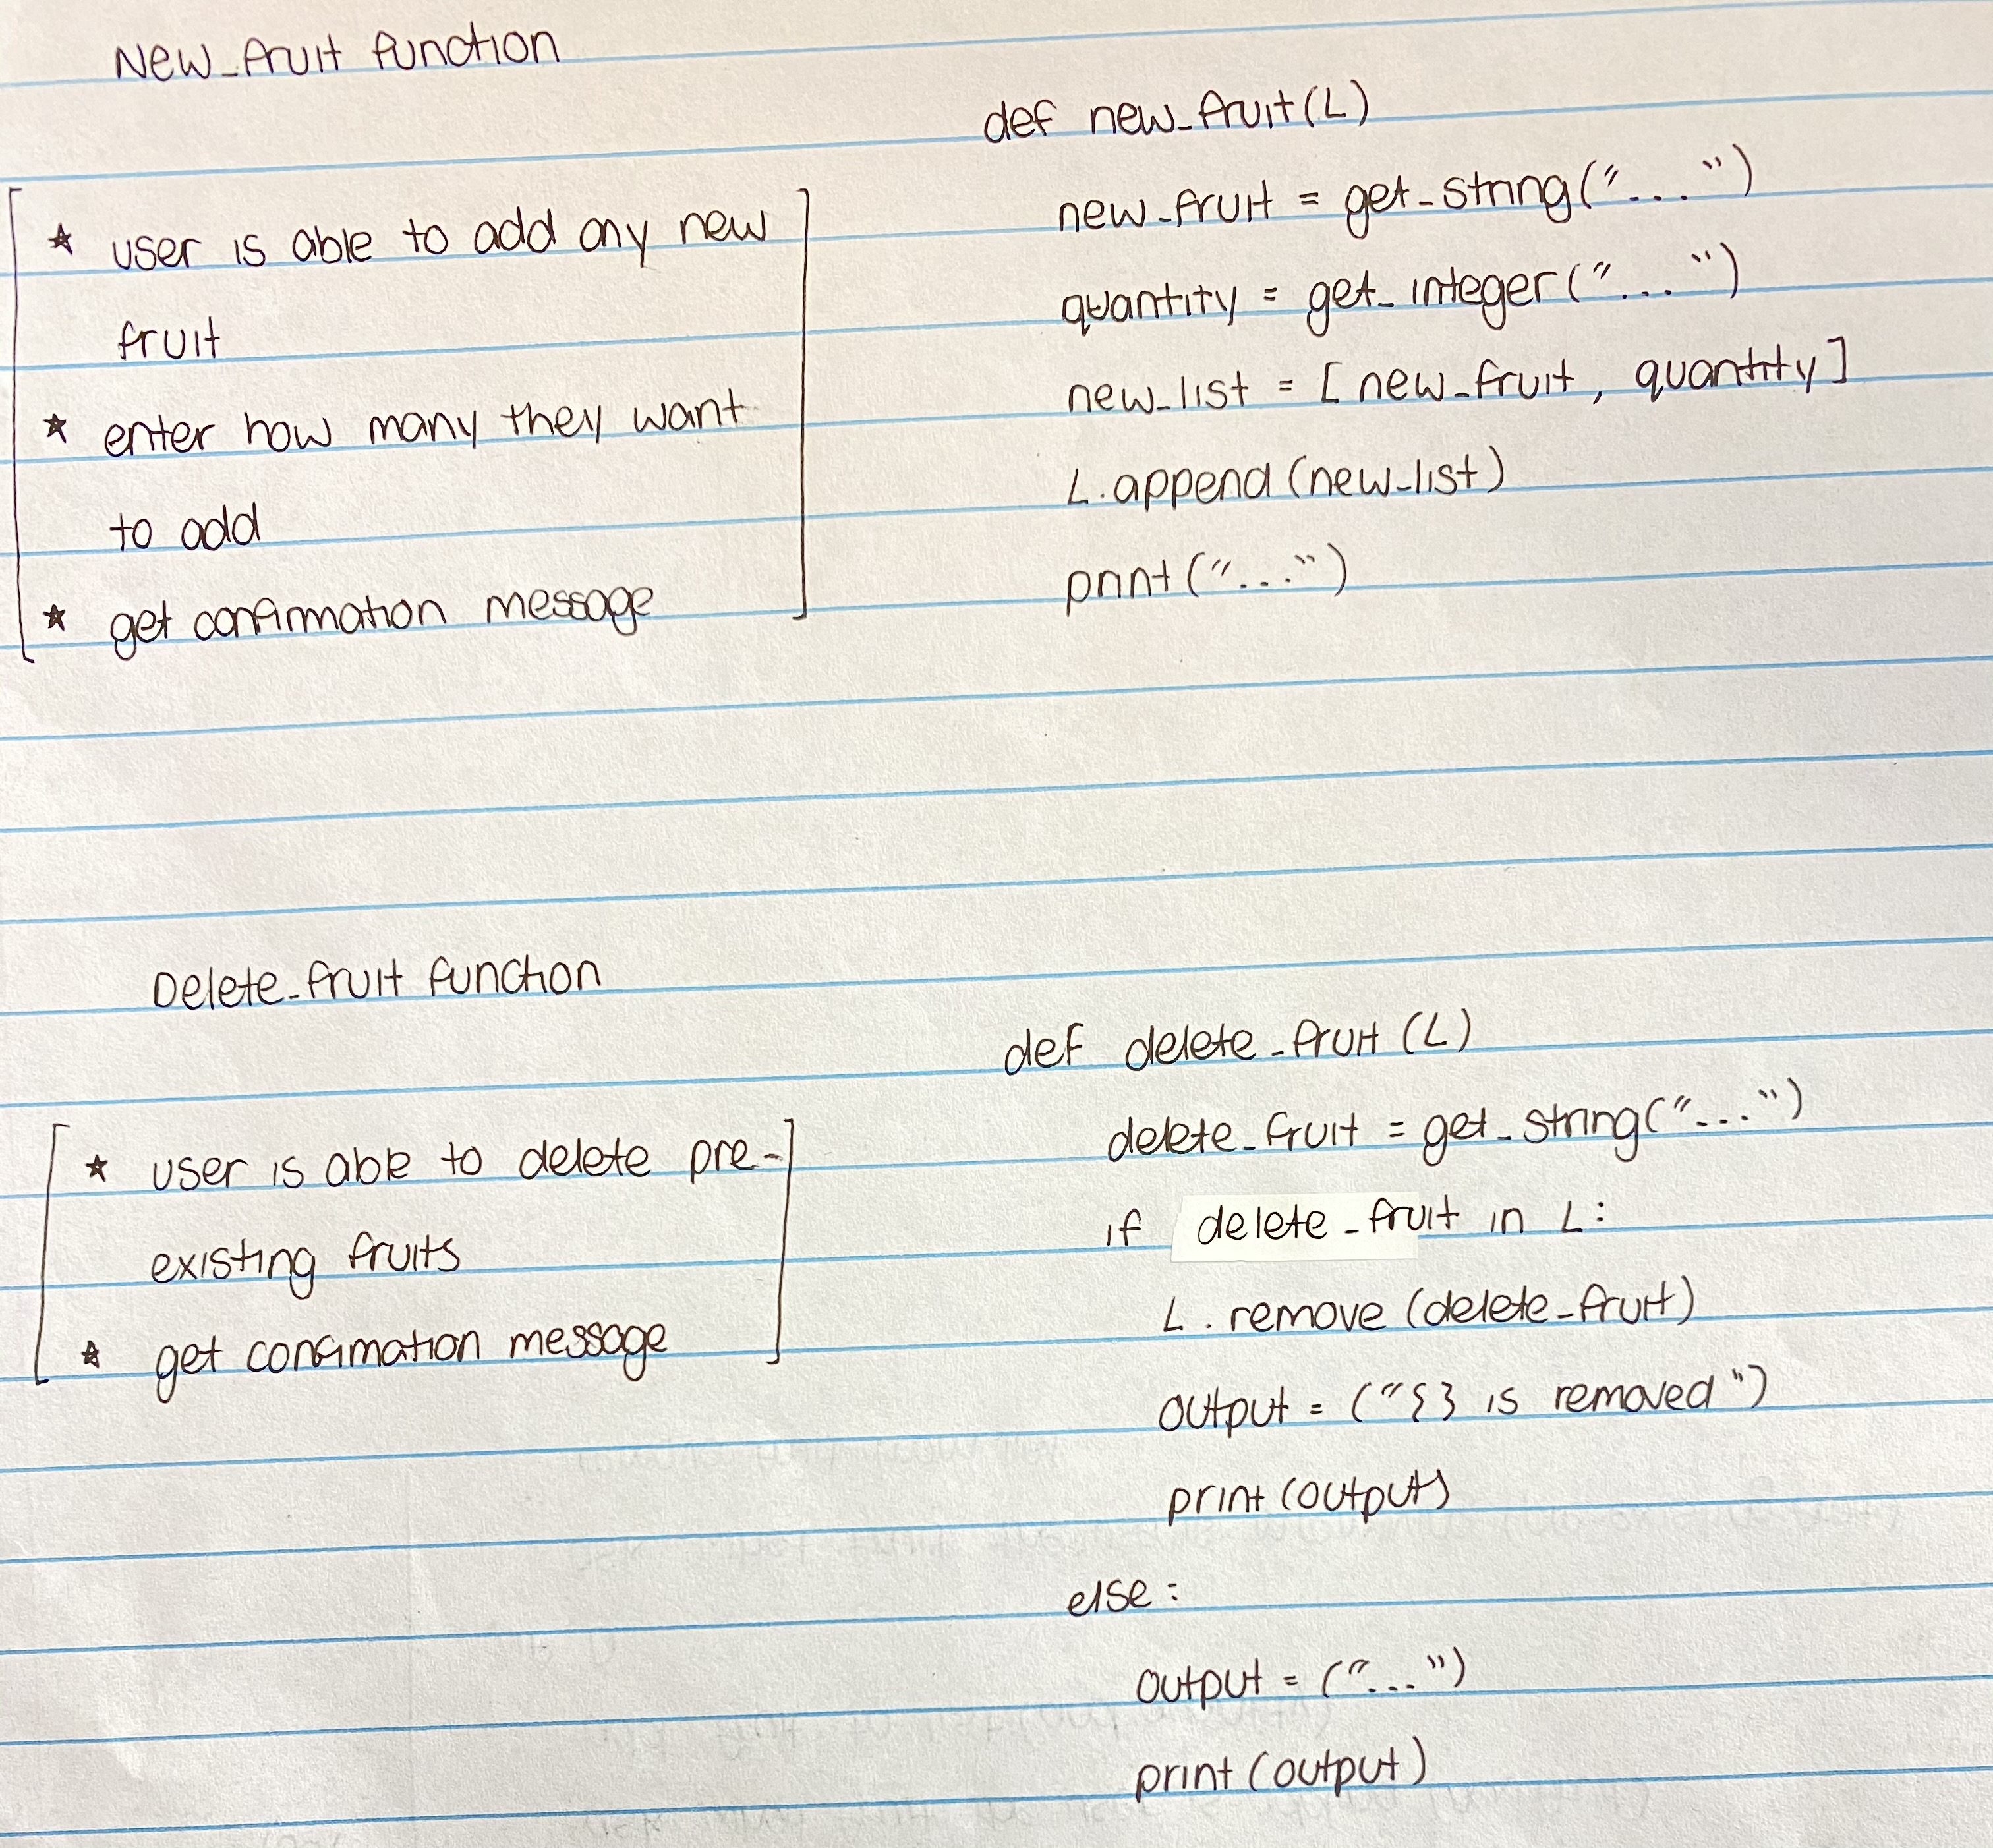 New_fruit function
* user is able to add any new
fruit
* enter how many they want
to add
* get confirmation message
def new_fruit(L)
new_fruit = get_string("...")
quantity = get_integer("...")
new_list = [new_fruit, quantity]
L.append(new_list)
print("...")
Delete_fruit function
* user is able to delete pre-
existing fruits
* get confimation message
def delete_fruit(L)
delete_fruit = get_string("...")
if delete_fruit in L:
L.remove(delete_fruit)
output = ("{} is removed")
print(output)
else:
output = ("...")
print(output)